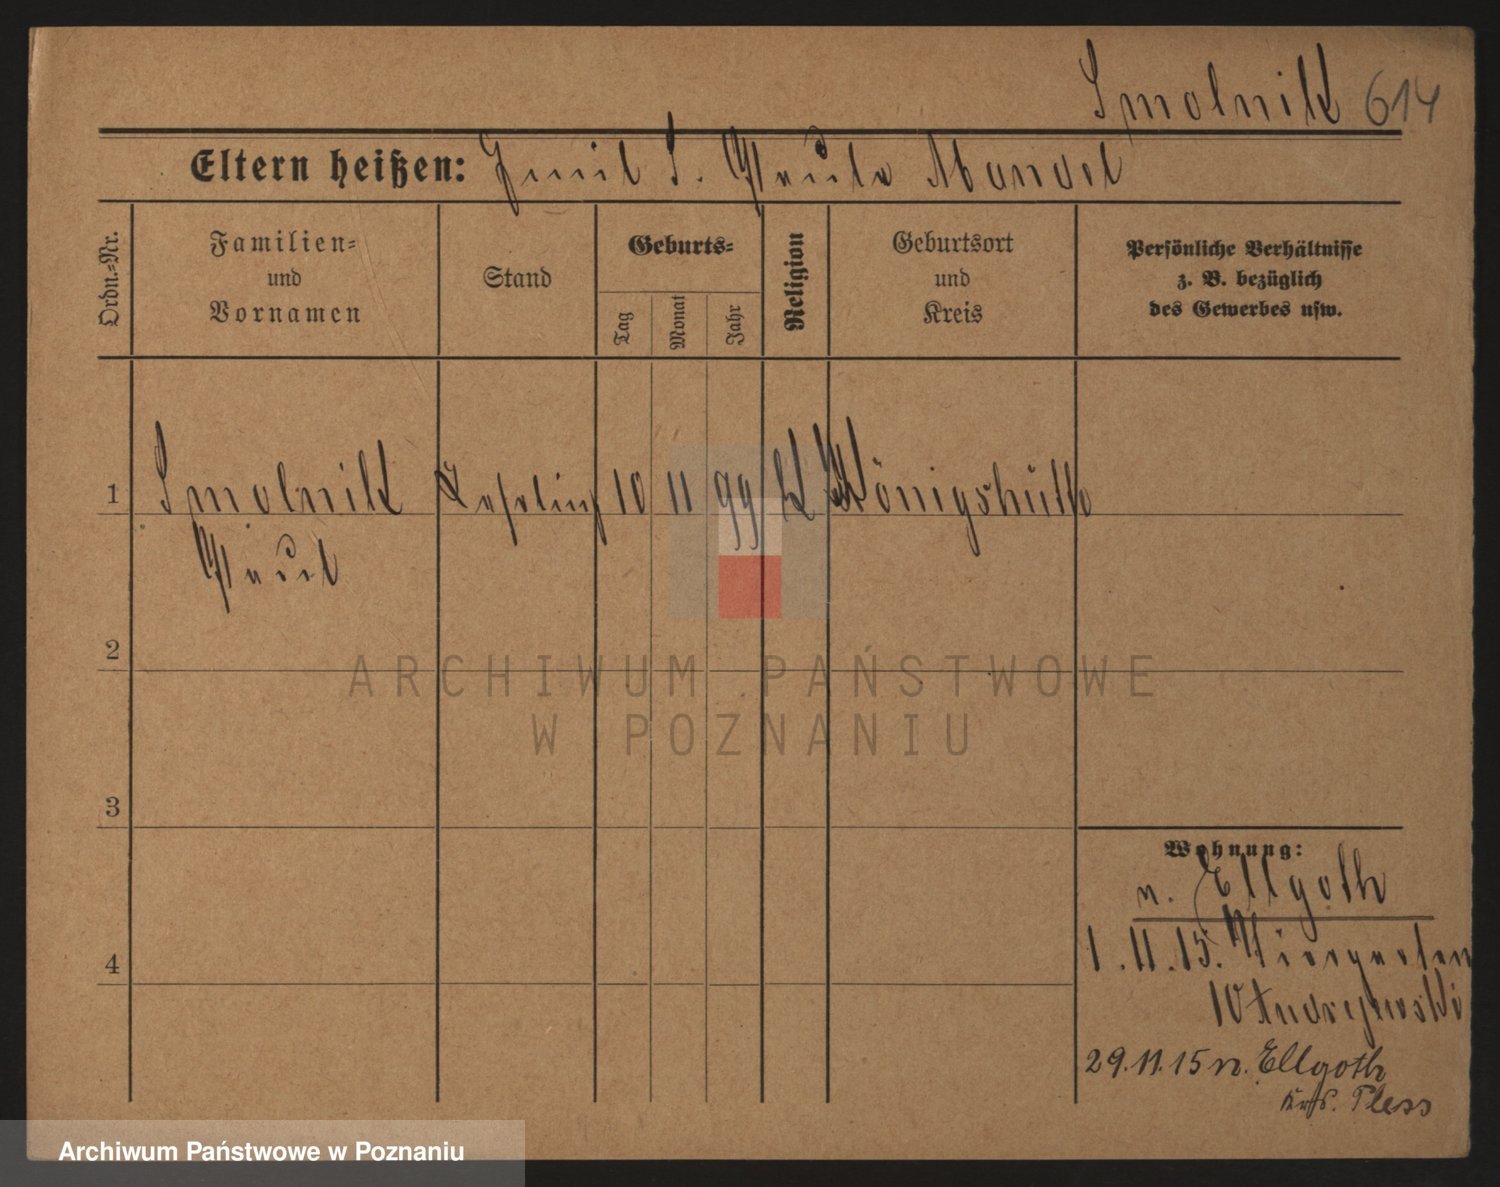 Smolnik 614
Eltern heißen: Emil S. Paula Mandel
Ordn.-Nr.
Familien-
und
Vornamen
Stand
Geburts-
Tag
Monat
Jahr
Religion
Geburtsort
und
Kreis
Persönliche Verhältnisse
z. B. bezüglich
des Gewerbes usw.
1 Smolnik Lehrling 10 11 99 k Königshütte
Paul
2
3
4
Wohnung:
n. Ellgoth
1.11.15. Tiergarten
10 Andrzejewski
29.11.15 n. Ellgoth
Krs. Pless
ARCHIWUM PAŃSTWOWE
W POZNANIU
Archiwum Państwowe w Poznaniu